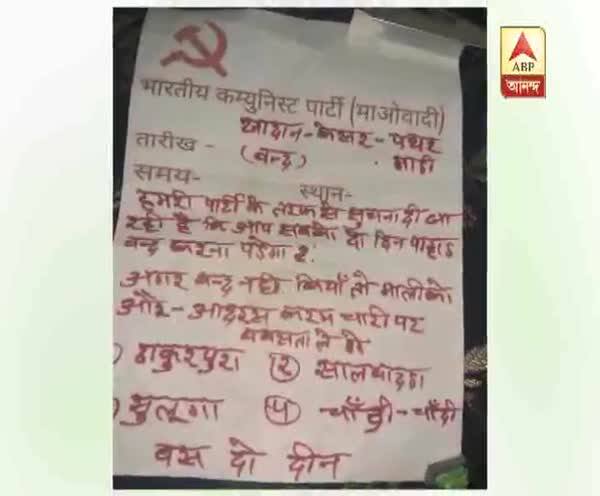 भारतीय कम्युनिस्ट पार्टी (माओवादी)
खादान-केसर-पथर
तारीख - (बन्द) गाडी
समय- स्थान-
हमरी पार्टी के तरफ से सुचना दी जा
रही है कि आप सबको दो दिन पाहाड
बन्द करना पडेगा २.
अगर बन्द नही किया तो मालीको
और-आफिस करम चारी पर
ले गे
ठाकुरपुरा (२) सालबादरा
सुलुंगा (५) चाँदी-चाँदी
बस दो दीन
ABP
আনন্দ